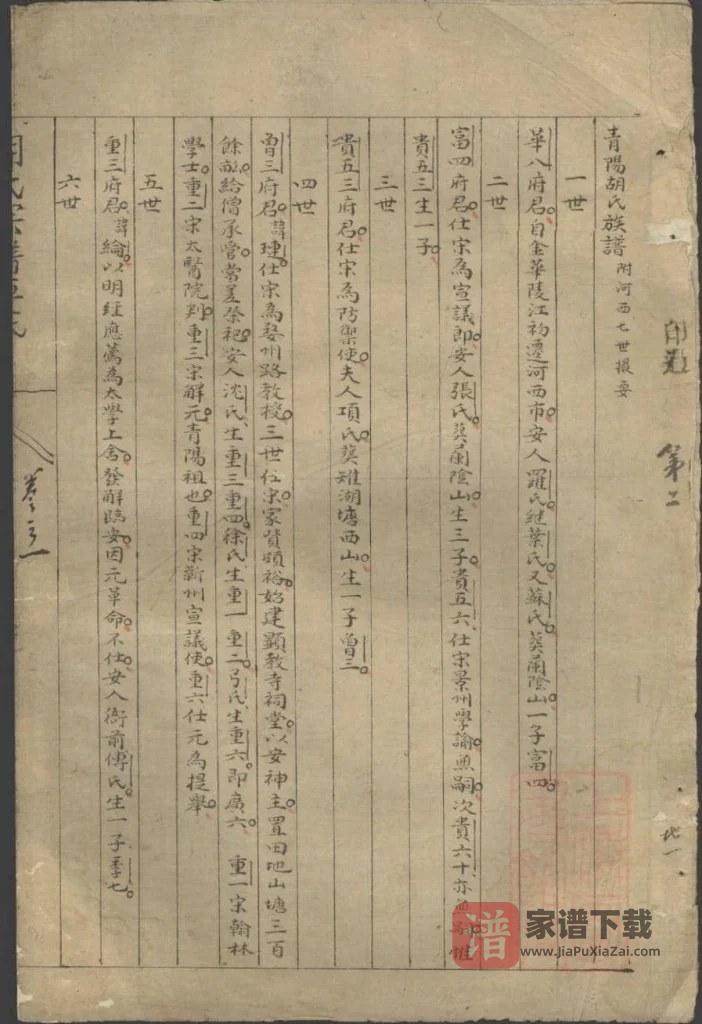 青陽胡氏族譜 附河西七世撮要
一世
華八府君自金華陵江初遷河西市安人羅氏继葉氏又蘇氏葬蘭陰山一子富四
二世
富四府君仕宋為宣議郎安人張氏葬蘭陰山生三子貴五六仕宋景州學諭無嗣次貴六十亦無嗣惟
貴五三生一子
三世
貴五三府君仕宋為防禦使夫人項氏葬雉湖塘西山生一子曾三
四世
曾三府君諱璉仕宋為婺州路教授三世仕宋家貲頗裕始建顯教寺祠堂以安神主置田地山塘三百
餘畝給僧承管常差祭祀安人沈氏生重三重四徐氏生重一重二弓氏生重六即廣六 重一宋翰林
學士重二宋太醫院判重三宋解元青陽祖也重四宋蘄州宣議使重六仕元為提舉
五世
重三府君諱綸以明經應薦為太學上舍發解臨安因元革命不仕安人衙前傅氏生一子季七
六世
第二
卷之一
北一
谱 家谱下载
www.JiaPuXiaZai.com